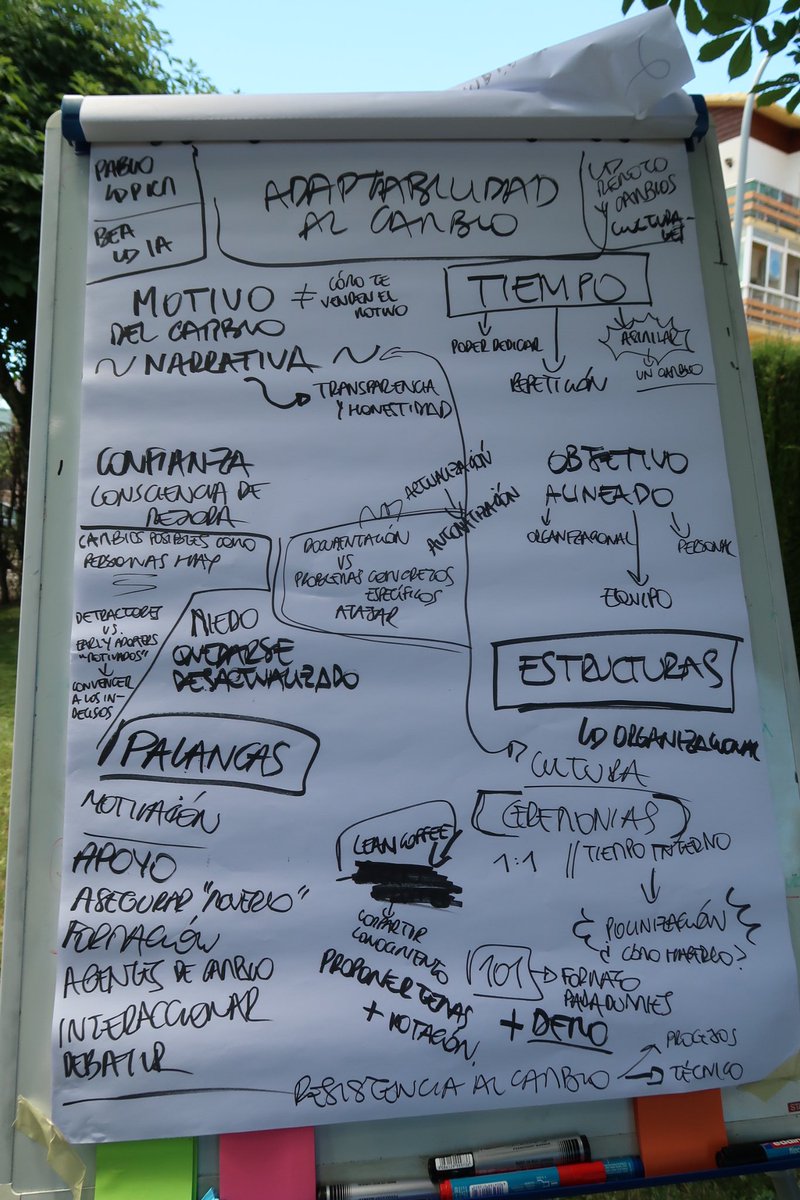 PABLO
BEA
ADAPTABILIDAD
AL CAMBIO
REMOTO
Y CAMBIOS
CULTURA
MOTIVO
DEL CAMBIO
≠ CÓMO TE
VENDEN EL
MOTIVO
~ NARRATIVA ~
TRANSPARENCIA
Y HONESTIDAD
TIEMPO
PODER DEDICAR
REPETICIÓN
ASIMILAR
UN CAMBIO
CONFIANZA
CONSCIENCIA DE
MEJORA
CAMBIOS POSIBLES COMO
PERSONAS HAY
DETRACTORES
VS.
EARLY ADOPTERS
"MOTIVADOS"
CONVENCER
A LOS IN-
DECISOS
MIEDO
QUEDARSE
DESACTUALIZADO
ACTUALIZACIÓN
AUTOMATIZACIÓN
DOCUMENTACIÓN
VS
PROBLEMAS CONCRETOS
ESPECÍFICOS
ATAJAR
OBJETIVO
ALINEADO
ORGANIZACIONAL
EQUIPO
PERSONAL
ESTRUCTURAS
ORGANIZACIONAL
CULTURA
CEREMONIAS
1:1 // TIEMPO INTERNO
POLINIZACIÓN
¿CÓMO HACERLO?
PALANCAS
MOTIVACIÓN
APOYO
ASEGURAR "MOVERLO"
FORMACIÓN
AGENTES DE CAMBIO
INTERACCIONAR
DEBATIR
LEAN COFFEE
COMPARTIR
CONOCIMIENTO
PROPONER TEMAS
+ VOTACIÓN
101 FORMATO
PARA DUMMIES
+ DEMO
RESISTENCIA AL CAMBIO
PROCESOS
TÉCNICO